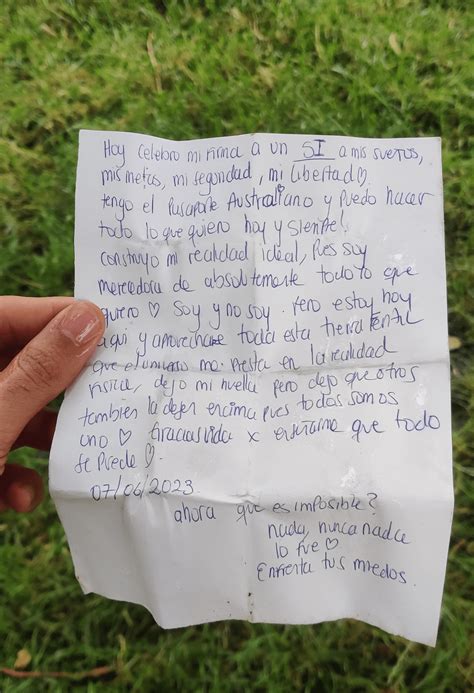 Hoy celebro mi firma a un SI a mis sueños,
mis metas, mi seguridad, mi libertad♡
tengo el Pasaporte Australiano y puedo hacer
todo lo que quiero hoy y siempre!
construyo mi realidad ideal, pues soy
merecedora de absolutamente todo lo que
quiero ♡ Soy y no soy. Pero estoy hoy
aqui y aprovechare toda esta tierra fertil
que el universo me presta en la realidad
fisica, dejo mi huella pero dejo que otros
tambien la dejen encima pues todos somos
uno ♡ Gracias vida x enseñarme que todo
se puede ♡.
07/06/2023
ahora que es imposible?
nada, nunca nada
lo fue ♡
Enfrenta tus miedos.